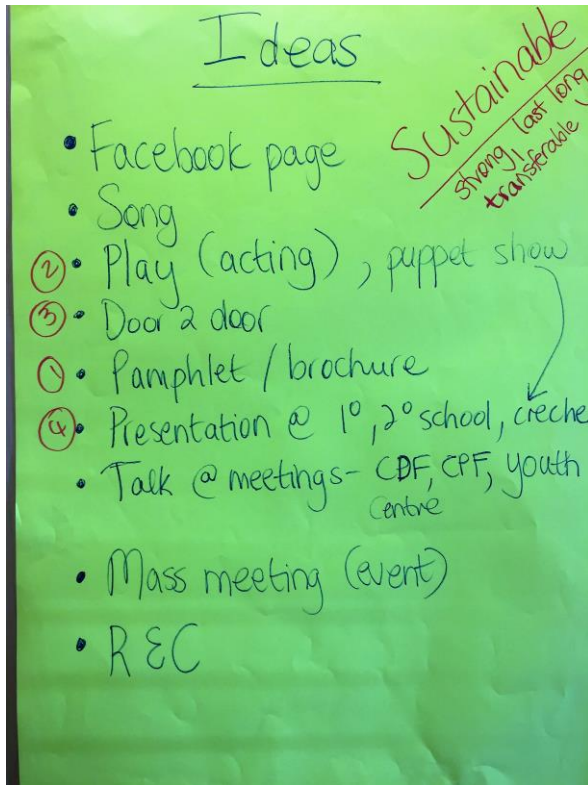 Ideas
Sustainable
strong, last long
transferable
• Facebook page
• Song
② • Play (acting), puppet show
③ • Door 2 door
① • Pamphlet / brochure
④ • Presentation @ 1º, 2º school, creche
• Talk @ meetings - CDF, CPF, youth
centre
• Mass meeting (event)
• REC